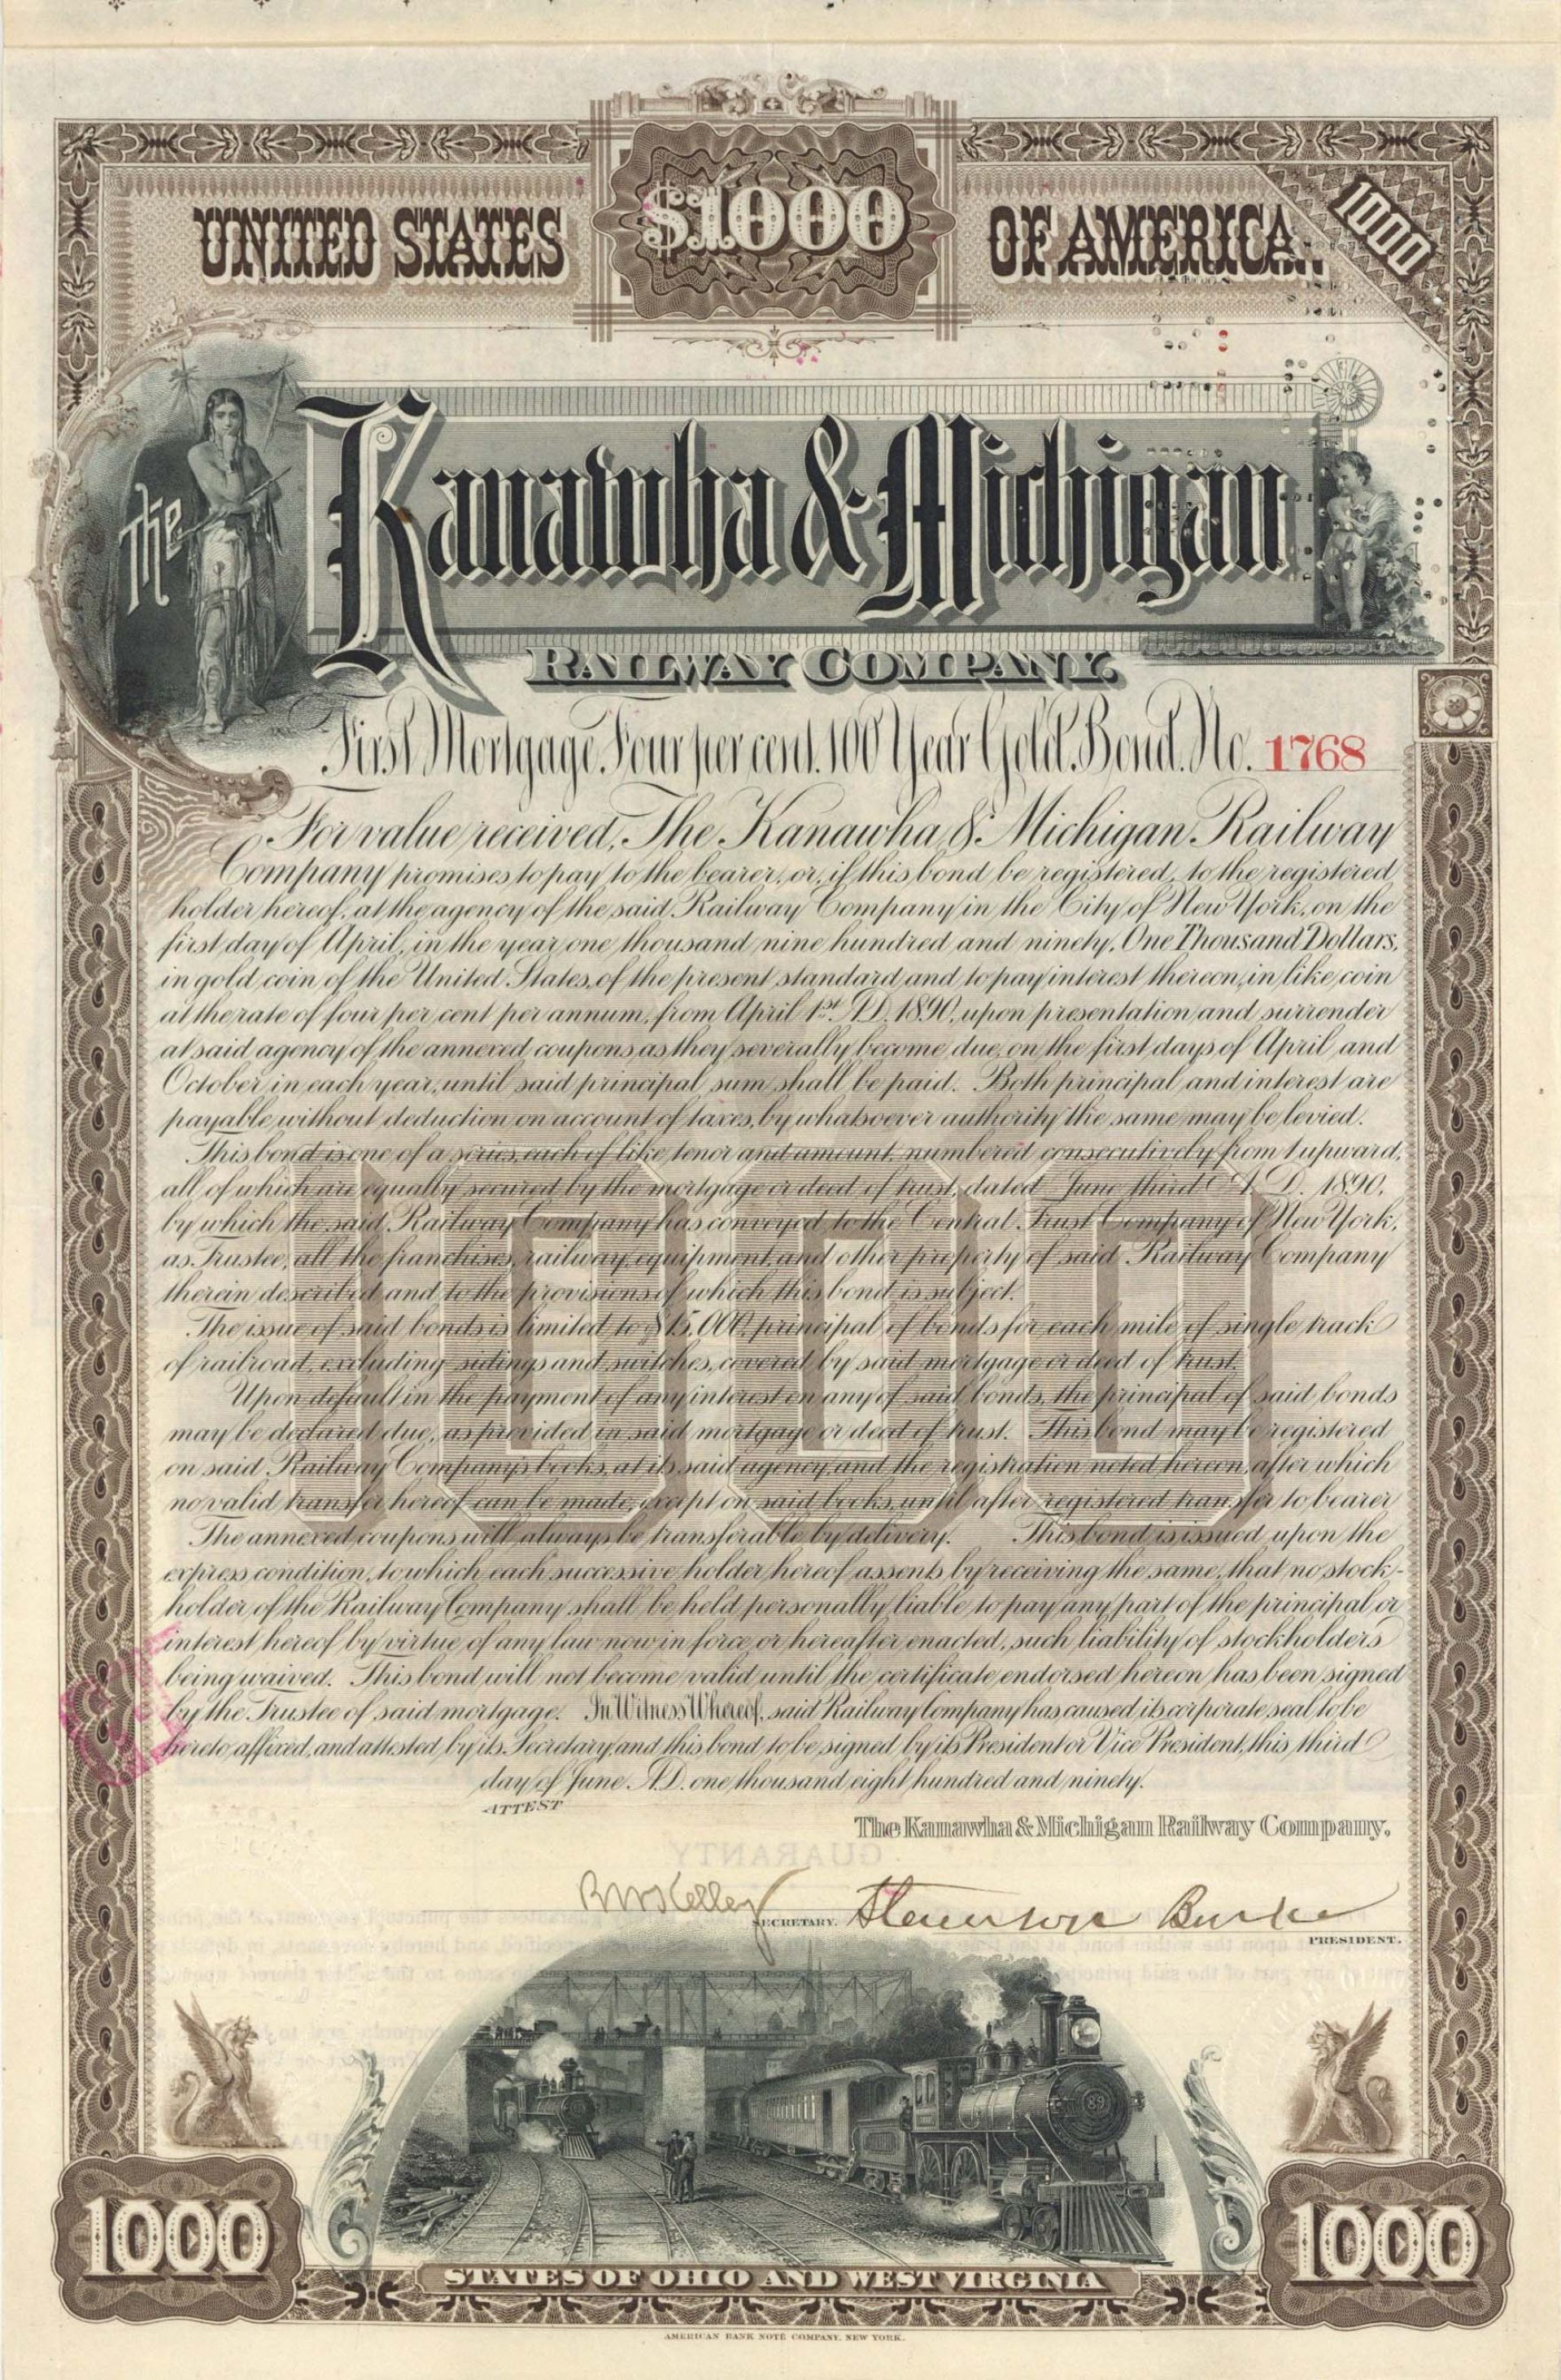 UNITED STATES $1000 OF AMERICA. 1000
The Kanawha & Michigan
RAILWAY COMPANY.
First Mortgage Four per cent. 100 Year Gold Bond. No. 1768
For value received, The Kanawha & Michigan Railway
Company promises to pay to the bearer, or, if this bond be registered, to the registered
holder hereof, at the agency of the said Railway Company in the City of New York, on the
first day of April, in the year one thousand nine hundred and ninety, One Thousand Dollars,
in gold coin of the United States, of the present standard and to pay interest thereon, in like coin
at the rate of four per cent per annum, from April 1st A.D. 1890, upon presentation and surrender
at said agency of the annexed coupons as they severally become due, on the first days of April and
October in each year, until said principal sum shall be paid. Both principal and interest are
payable without deduction on account of taxes, by whatsoever authority the same may be levied.
This bond is one of a series, each of like tenor and amount, numbered consecutively from 1 upward,
all of which are equally secured by the mortgage or deed of trust, dated June third A.D. 1890,
by which the said Railway Company has conveyed to the Central Trust Company of New York,
as Trustee, all the franchises, railway, equipment, and other property of said Railway Company
therein described and to the provisions of which this bond is subject.
The issue of said bonds is limited to $15,000, principal of bonds for each mile of single track
of railroad, excluding sidings and switches, covered by said mortgage or deed of trust.
Upon default in the payment of any interest on any of said bonds, the principal of said bonds
may be declared due, as provided in said mortgage or deed of trust. This bond may be registered
on said Railway Company's books, at its said agency, and the registration noted hereon, after which
no valid transfer hereof can be made, except on said books, until after registered transfer to bearer
The annexed coupons will always be transferable by delivery. This bond is issued upon the
express condition, to which each successive holder hereof assents by receiving the same, that no stock-
holder of the Railway Company shall be held personally liable to pay any part of the principal or
interest hereof by virtue of any law now in force or hereafter enacted, such liability of stockholders
being waived. This bond will not become valid until the certificate endorsed hereon has been signed
by the Trustee of said mortgage. In Witness Whereof, said Railway Company has caused its corporate seal to be
hereto affixed, and attested by its Secretary, and this bond to be signed by its President or Vice President, this third
day of June A.D. one thousand eight hundred and ninety.
ATTEST
The Kanawha & Michigan Railway Company,
GUARANTY
Kelley SECRETARY. Stevenson Burke
PRESIDENT.
89
1000 1000
STATES OF OHIO AND WEST VIRGINIA
AMERICAN BANK NOTE COMPANY, NEW YORK.